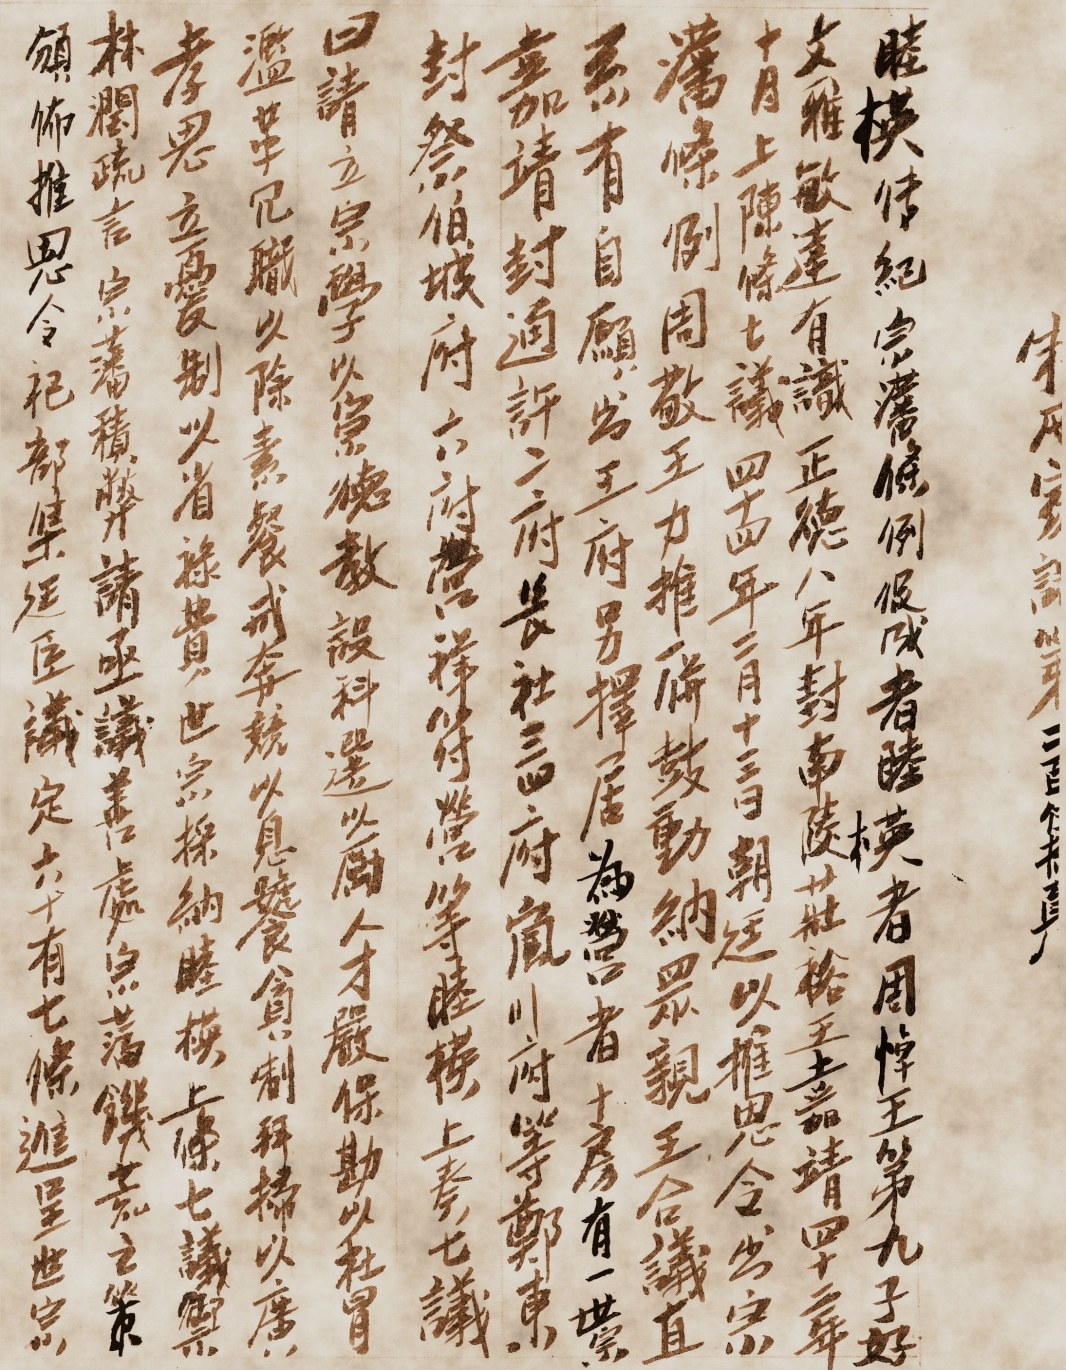 睦楧传紀宗藩條例促成者睦楧者周悼王第九子好
文雅敏達有識正德八年封南陵莊裕王嘉靖四十二年
十月上陳條七議四十四年二月十三日朝廷以推恩令出宗
藩條例周敬王力推一併鼓動納眾親王合議直
系有自願出王府另擇一居為營者十房有一禦
嘉靖封通許二府長社三四府嵐川府等鄭東
封祭伯坡府六府營禘符營等睦楧上奏七議
曰請立宗學以崇德教設科選以勵人才嚴保勘以杜冒
濫革冗職以除素餐戒奔競以息饕貪制拜掃以廣
孝思立憂制以省祿費世宗採納睦楧上條七議禦
林潤疏言宗藩積弊請亟議善處宗藩饑荒之策
頒佈推恩令祀部集廷臣議定六十有七條進呈世宗